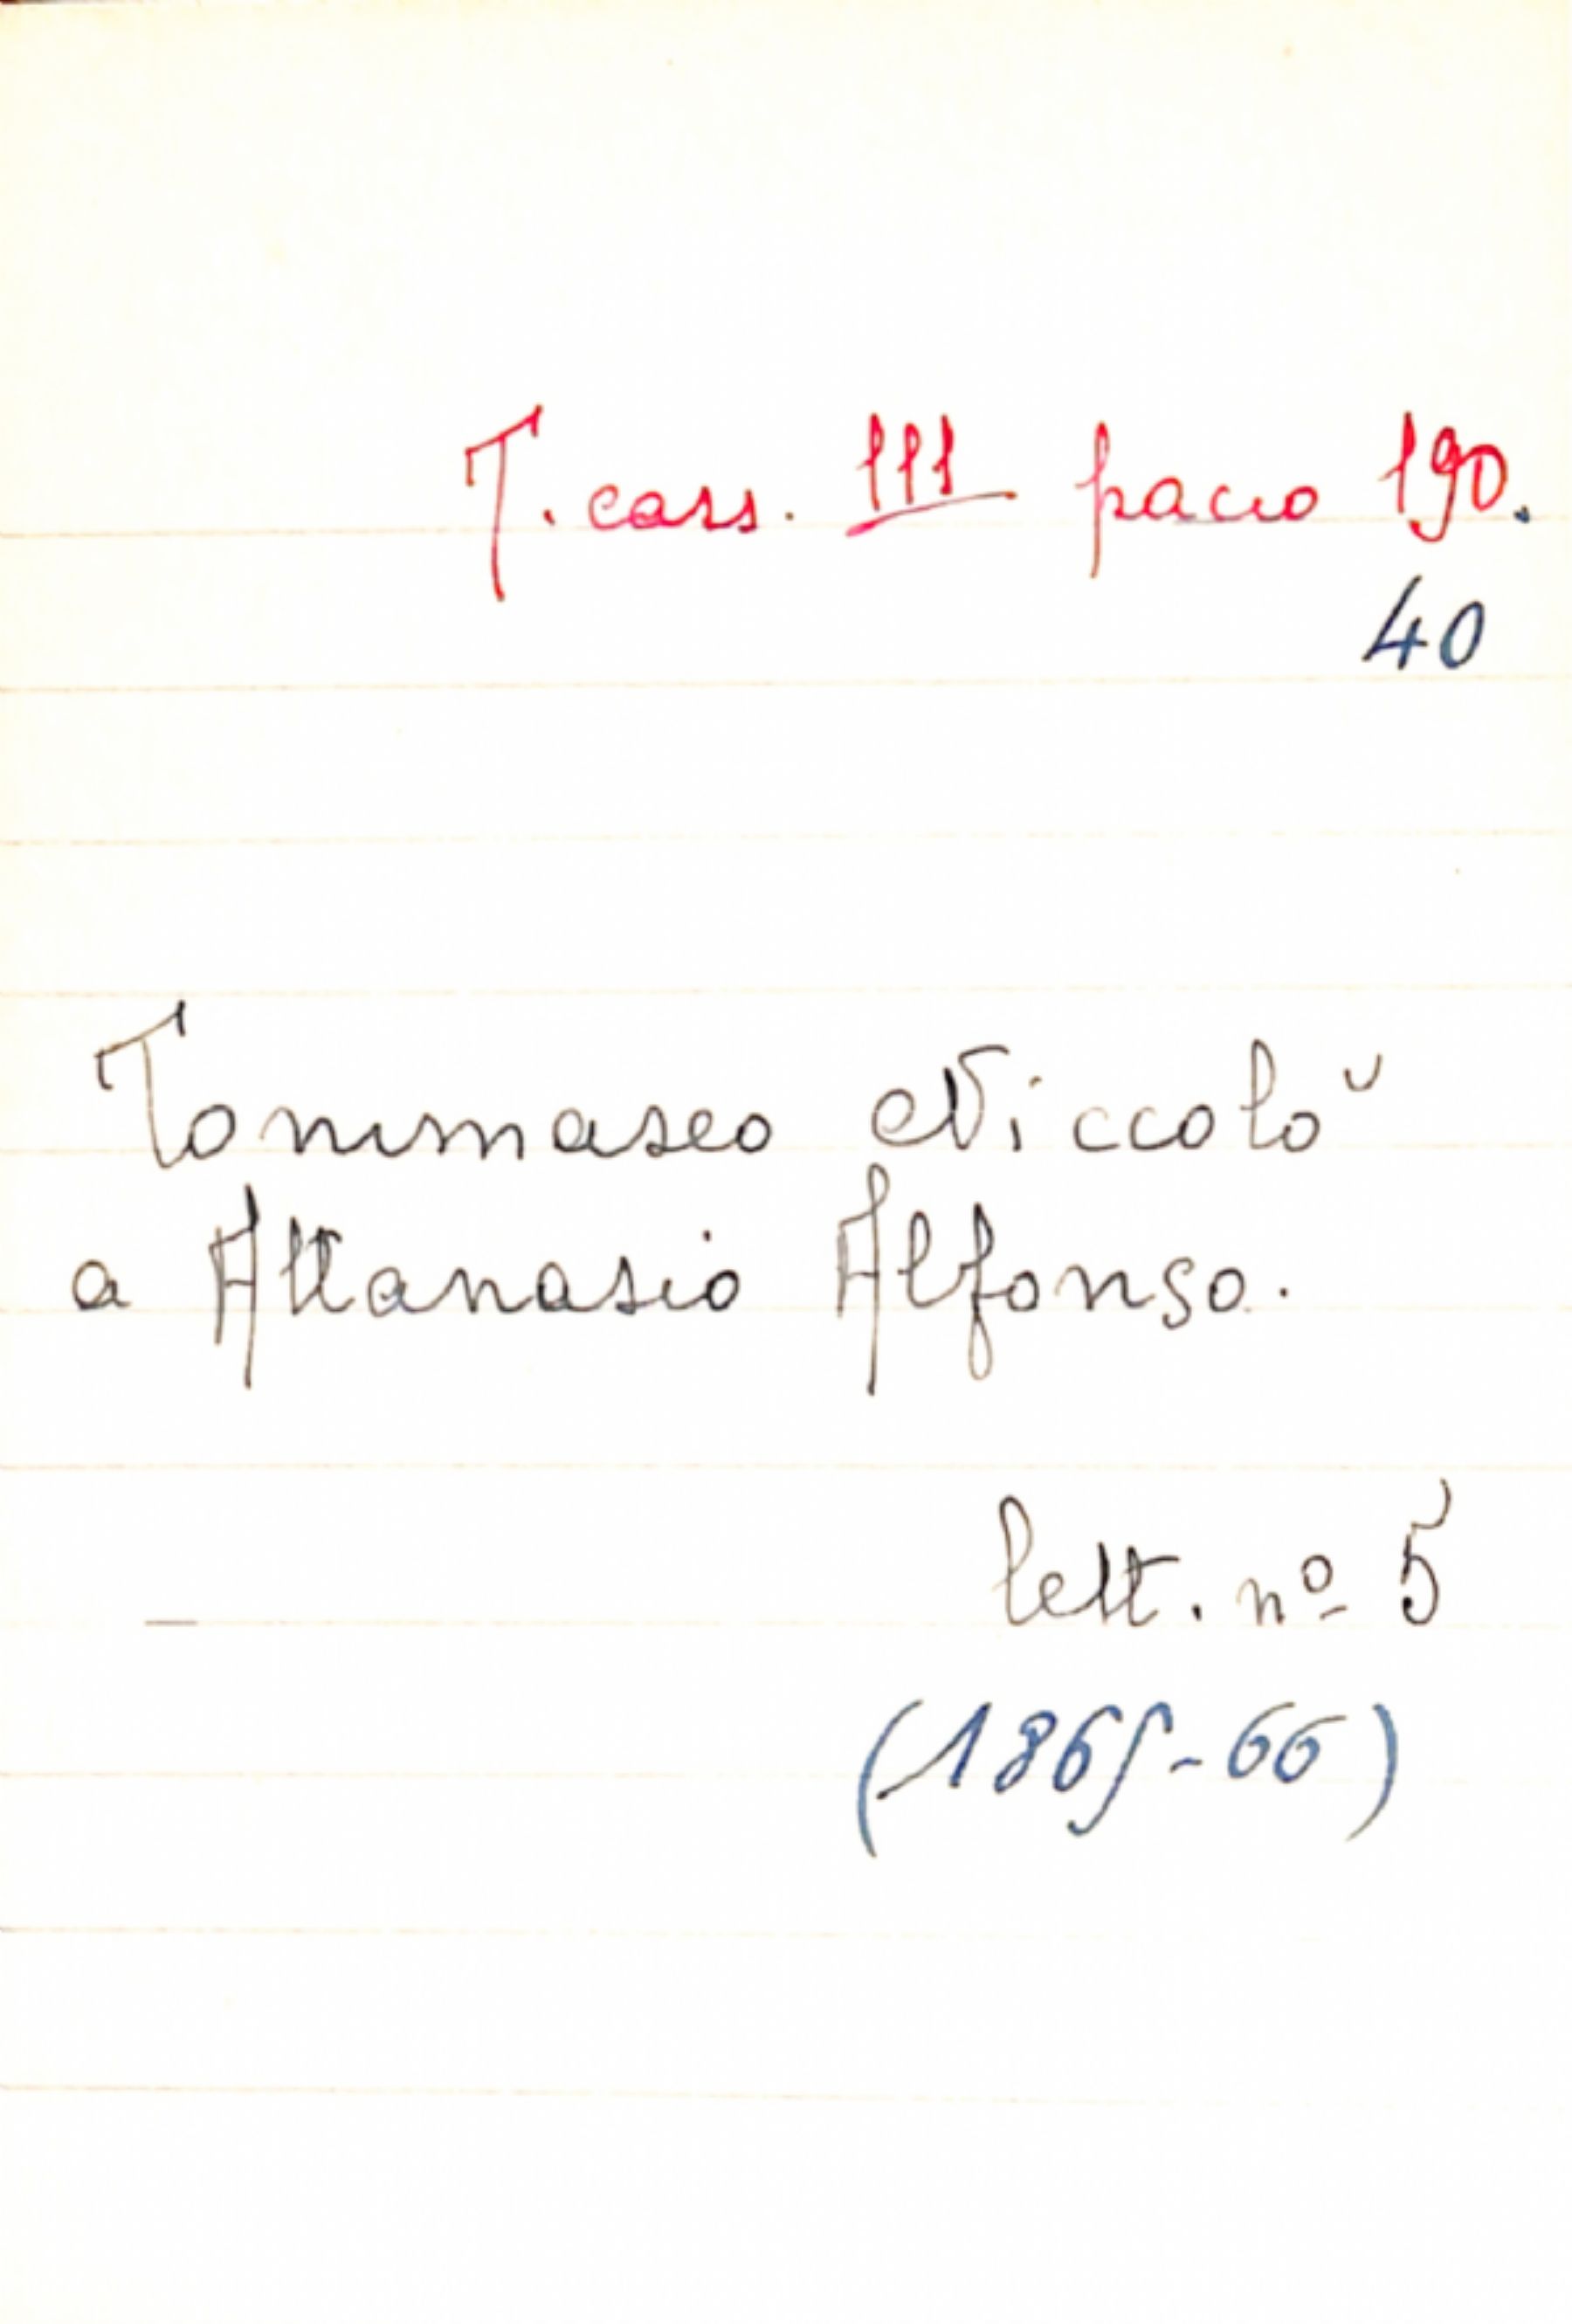 T. cass. III pacco 190.
40
Tommaseo Niccolò
a Attanasio Alfonso.
lett. nº 5
(1865-66)